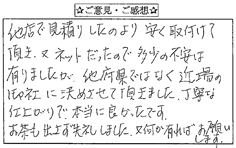 ☆ご意見・ご感想☆
他店で見積りしたのより安く取付けて
頂き、又ネットだったので多少の不安は
有りましたが、他府県ではなく近場の
御社に決めさせて頂きました。丁寧な
仕上がりで本当に良かったです。
お茶も出さず失礼しました。又何か有ればお願い
します。